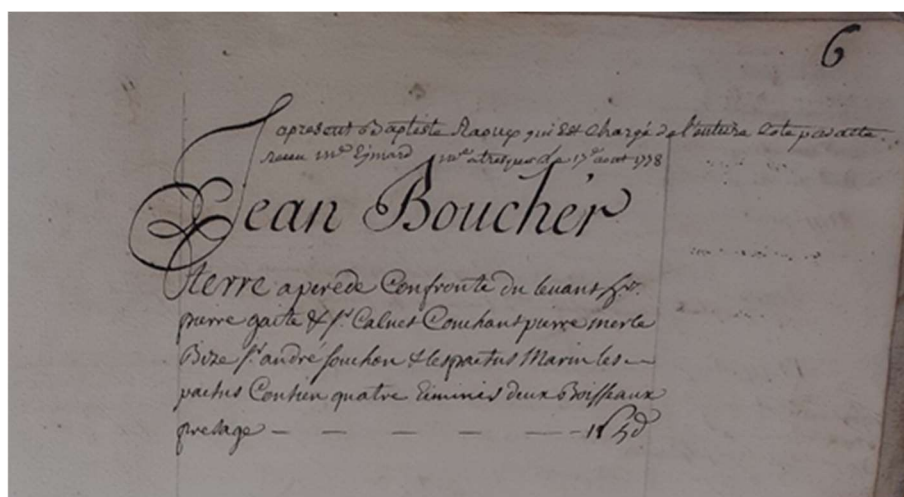 6
apresent Baptiste Raoux qui est Chargé de l'entiere Cote par acte
receu me Eimard le 17e aoat 1778
Jean Boucher
terre aperede Confronte du levant
pierre gaite & Sr Calvet Couchant pierre merle
Bize Sr andré Souchon & les pactus Marin les
pactus Contien quatre Eimines deux Boisseaux
presage